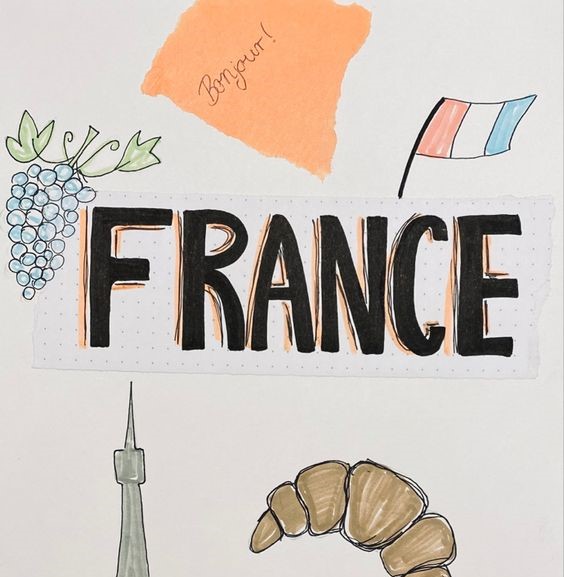 Bonjour!
FRANCE